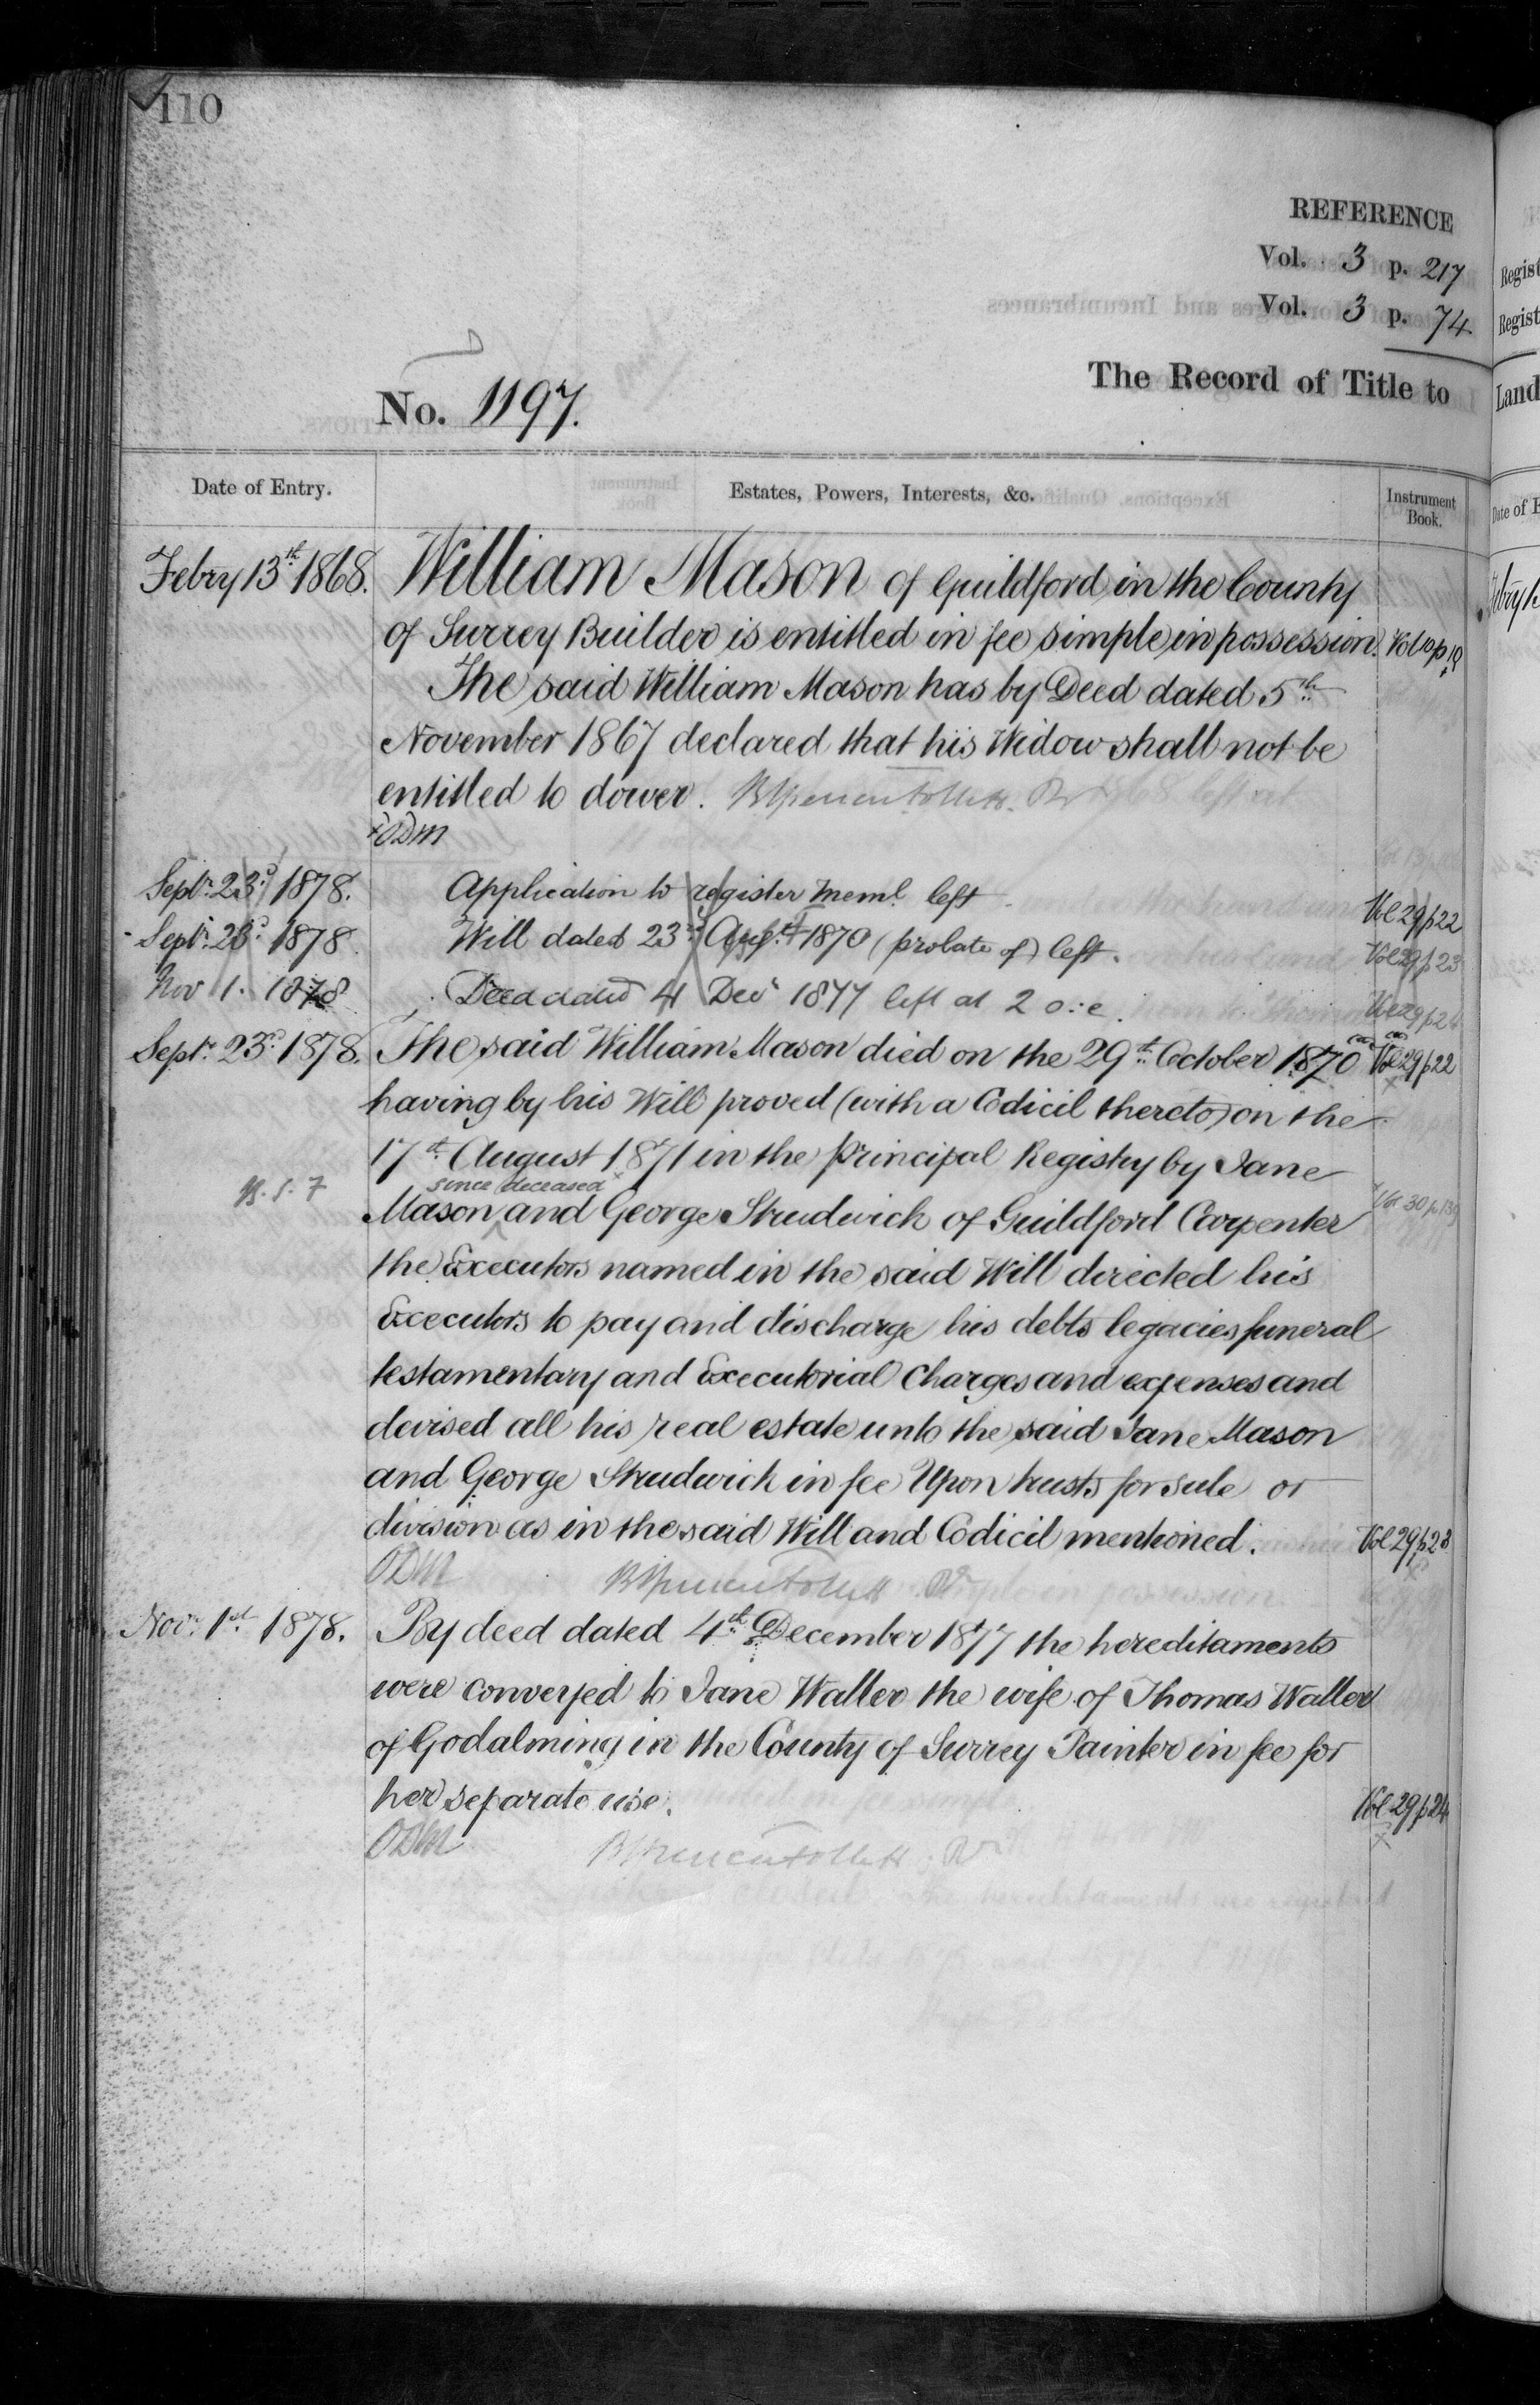 110
REFERENCE
Vol. 3 p. 217
Vol. 3 p. 74
No. 1197.
The Record of Title to
Date of Entry.
Estates, Powers, Interests, &c.
Instrument Book.
Febry 13th 1868. William Mason of Guildford in the County
of Surrey Builder is entitled in fee simple in possession. Vol 10 p 19
The said William Mason has by Deed dated 5th
November 1867 declared that his Widow shall not be
entitled to dower.
ODM
Septr. 23d 1878. Application to register Meml. left Vol 29 p 22
Septr. 23d 1878 Will dated 23rd Augst 1870 (probate of) left. Vol 29 p 23
Nov 1. 1878 Deed dated 4 Decr 1877 left at 2 o:c. Vol 29 p 24
Septr. 23d 1878. The said William Mason died on the 29th October 1870 Vol 29 p 22
having by his Will proved (with a Codicil thereto) on the
17th August 1871 in the Principal Registry by Jane
since deceased
Mason and George Strudwick of Guildford Carpenter Vol 30 p 139
the Executors named in the said Will directed his
Executors to pay and discharge his debts legacies funeral
testamentary and Executorial Charges and expenses and
devised all his real estate unto the said Jane Mason
and George Strudwick in fee Upon trusts for sale or
division as in the said Will and Codicil mentioned. Vol 29 p 23
ODM
Novr. 1st 1878. By deed dated 4th December 1877 the hereditaments
were conveyed to Jane Waller the wife of Thomas Waller
of Godalming in the County of Surrey Painter in fee for
her separate use. Vol 29 p 24
ODM
Regist
Regist
Land
Date of E